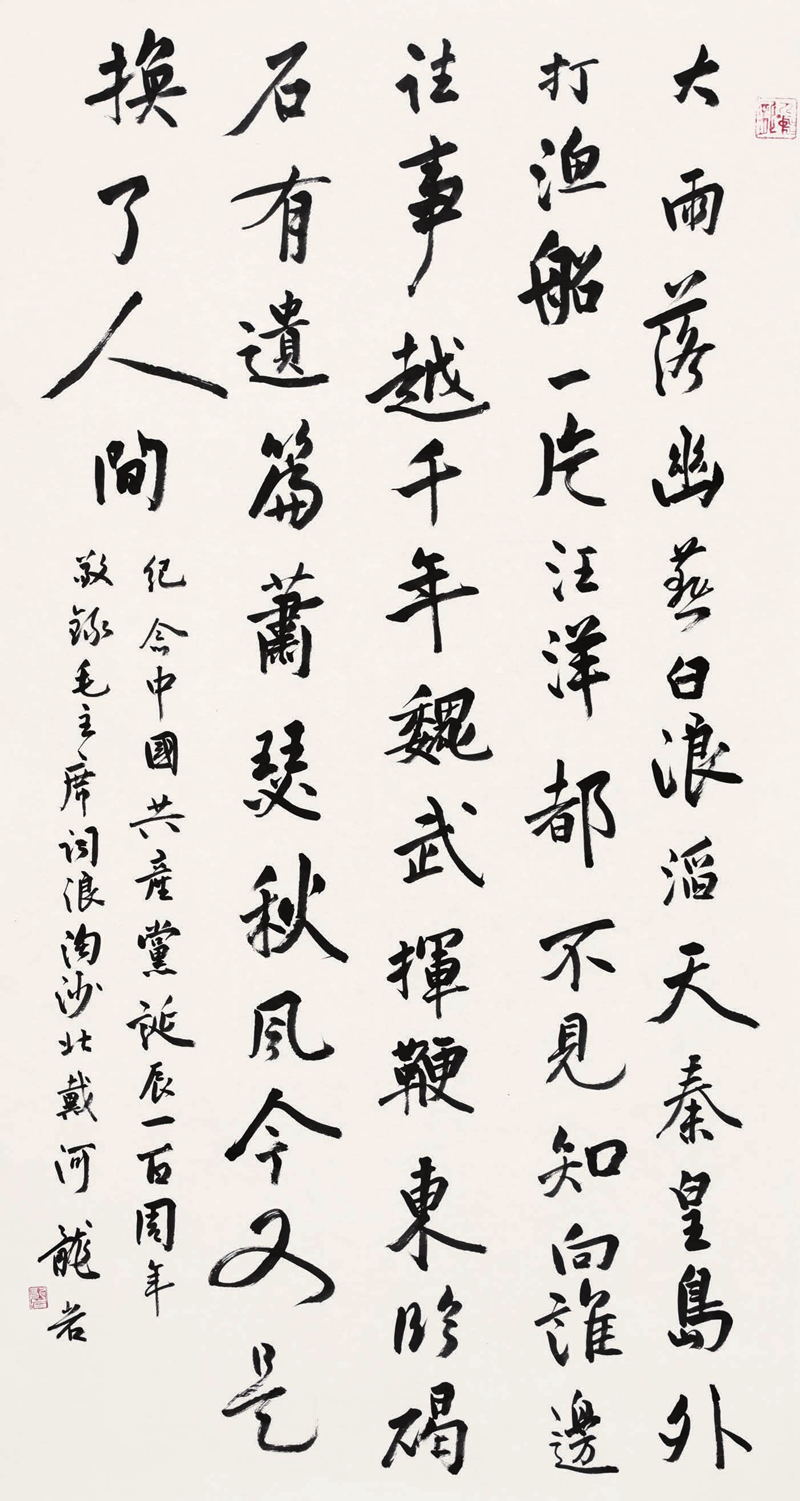 大雨落幽燕白浪滔天秦皇島外
打漁船一片汪洋都不見知向誰邊
往事越千年魏武揮鞭東臨碣
石有遺篇蕭瑟秋風今又是
換了人間
紀念中國共產黨誕辰一百周年
敬錄毛主席詞浪淘沙北戴河 龍岩